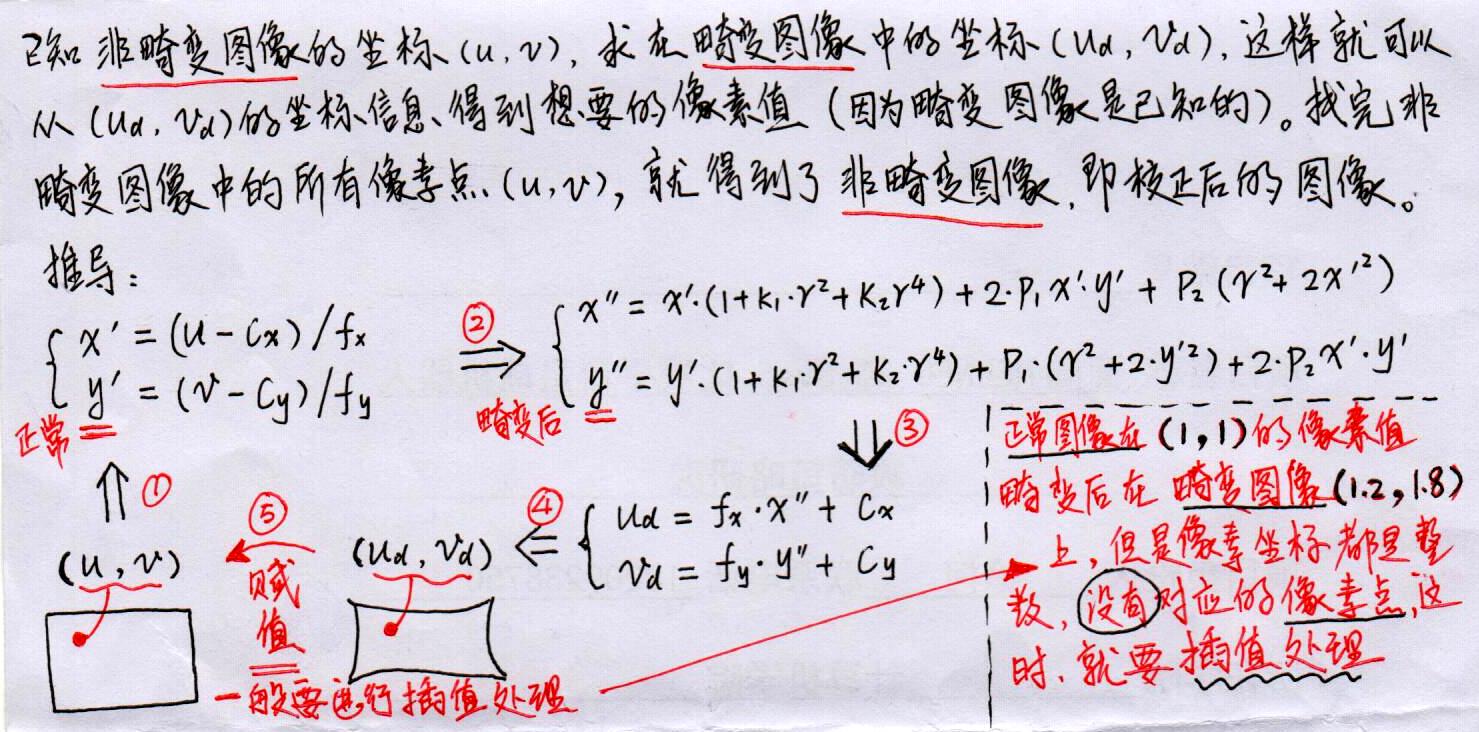 已知 非畸变图像的坐标(u,v), 求在畸变图像中的坐标(ud,vd), 这样就可以
从(ud,vd)的坐标信息、得到想要的像素值 (因为畸变图像是已知的)。找完非
畸变图像中的所有像素点(u,v), 就得到了非畸变图像, 即校正后的图像。
推导:
x' = (u-cx)/fx
y' = (v-cy)/fy
正常
②
x'' = x'·(1+k1·r²+k2r⁴)+2·P1x'·y'+P2(r²+2x'²)
y'' = y'·(1+k1·r²+k2·r⁴)+P1·(r²+2·y'²)+2·P2x'·y'
畸变后
③
①
ud = fx·x''+cx
vd = fy·y''+cy
④
(ud,vd)
⑤
赋值
(u,v)
一般要进行插值处理
正常图像在(1,1)的像素值
畸变后在 畸变图像(1.2,1.8)
上, 但是像素坐标都是整
数, 没有对应的像素点, 这
时, 就要插值处理